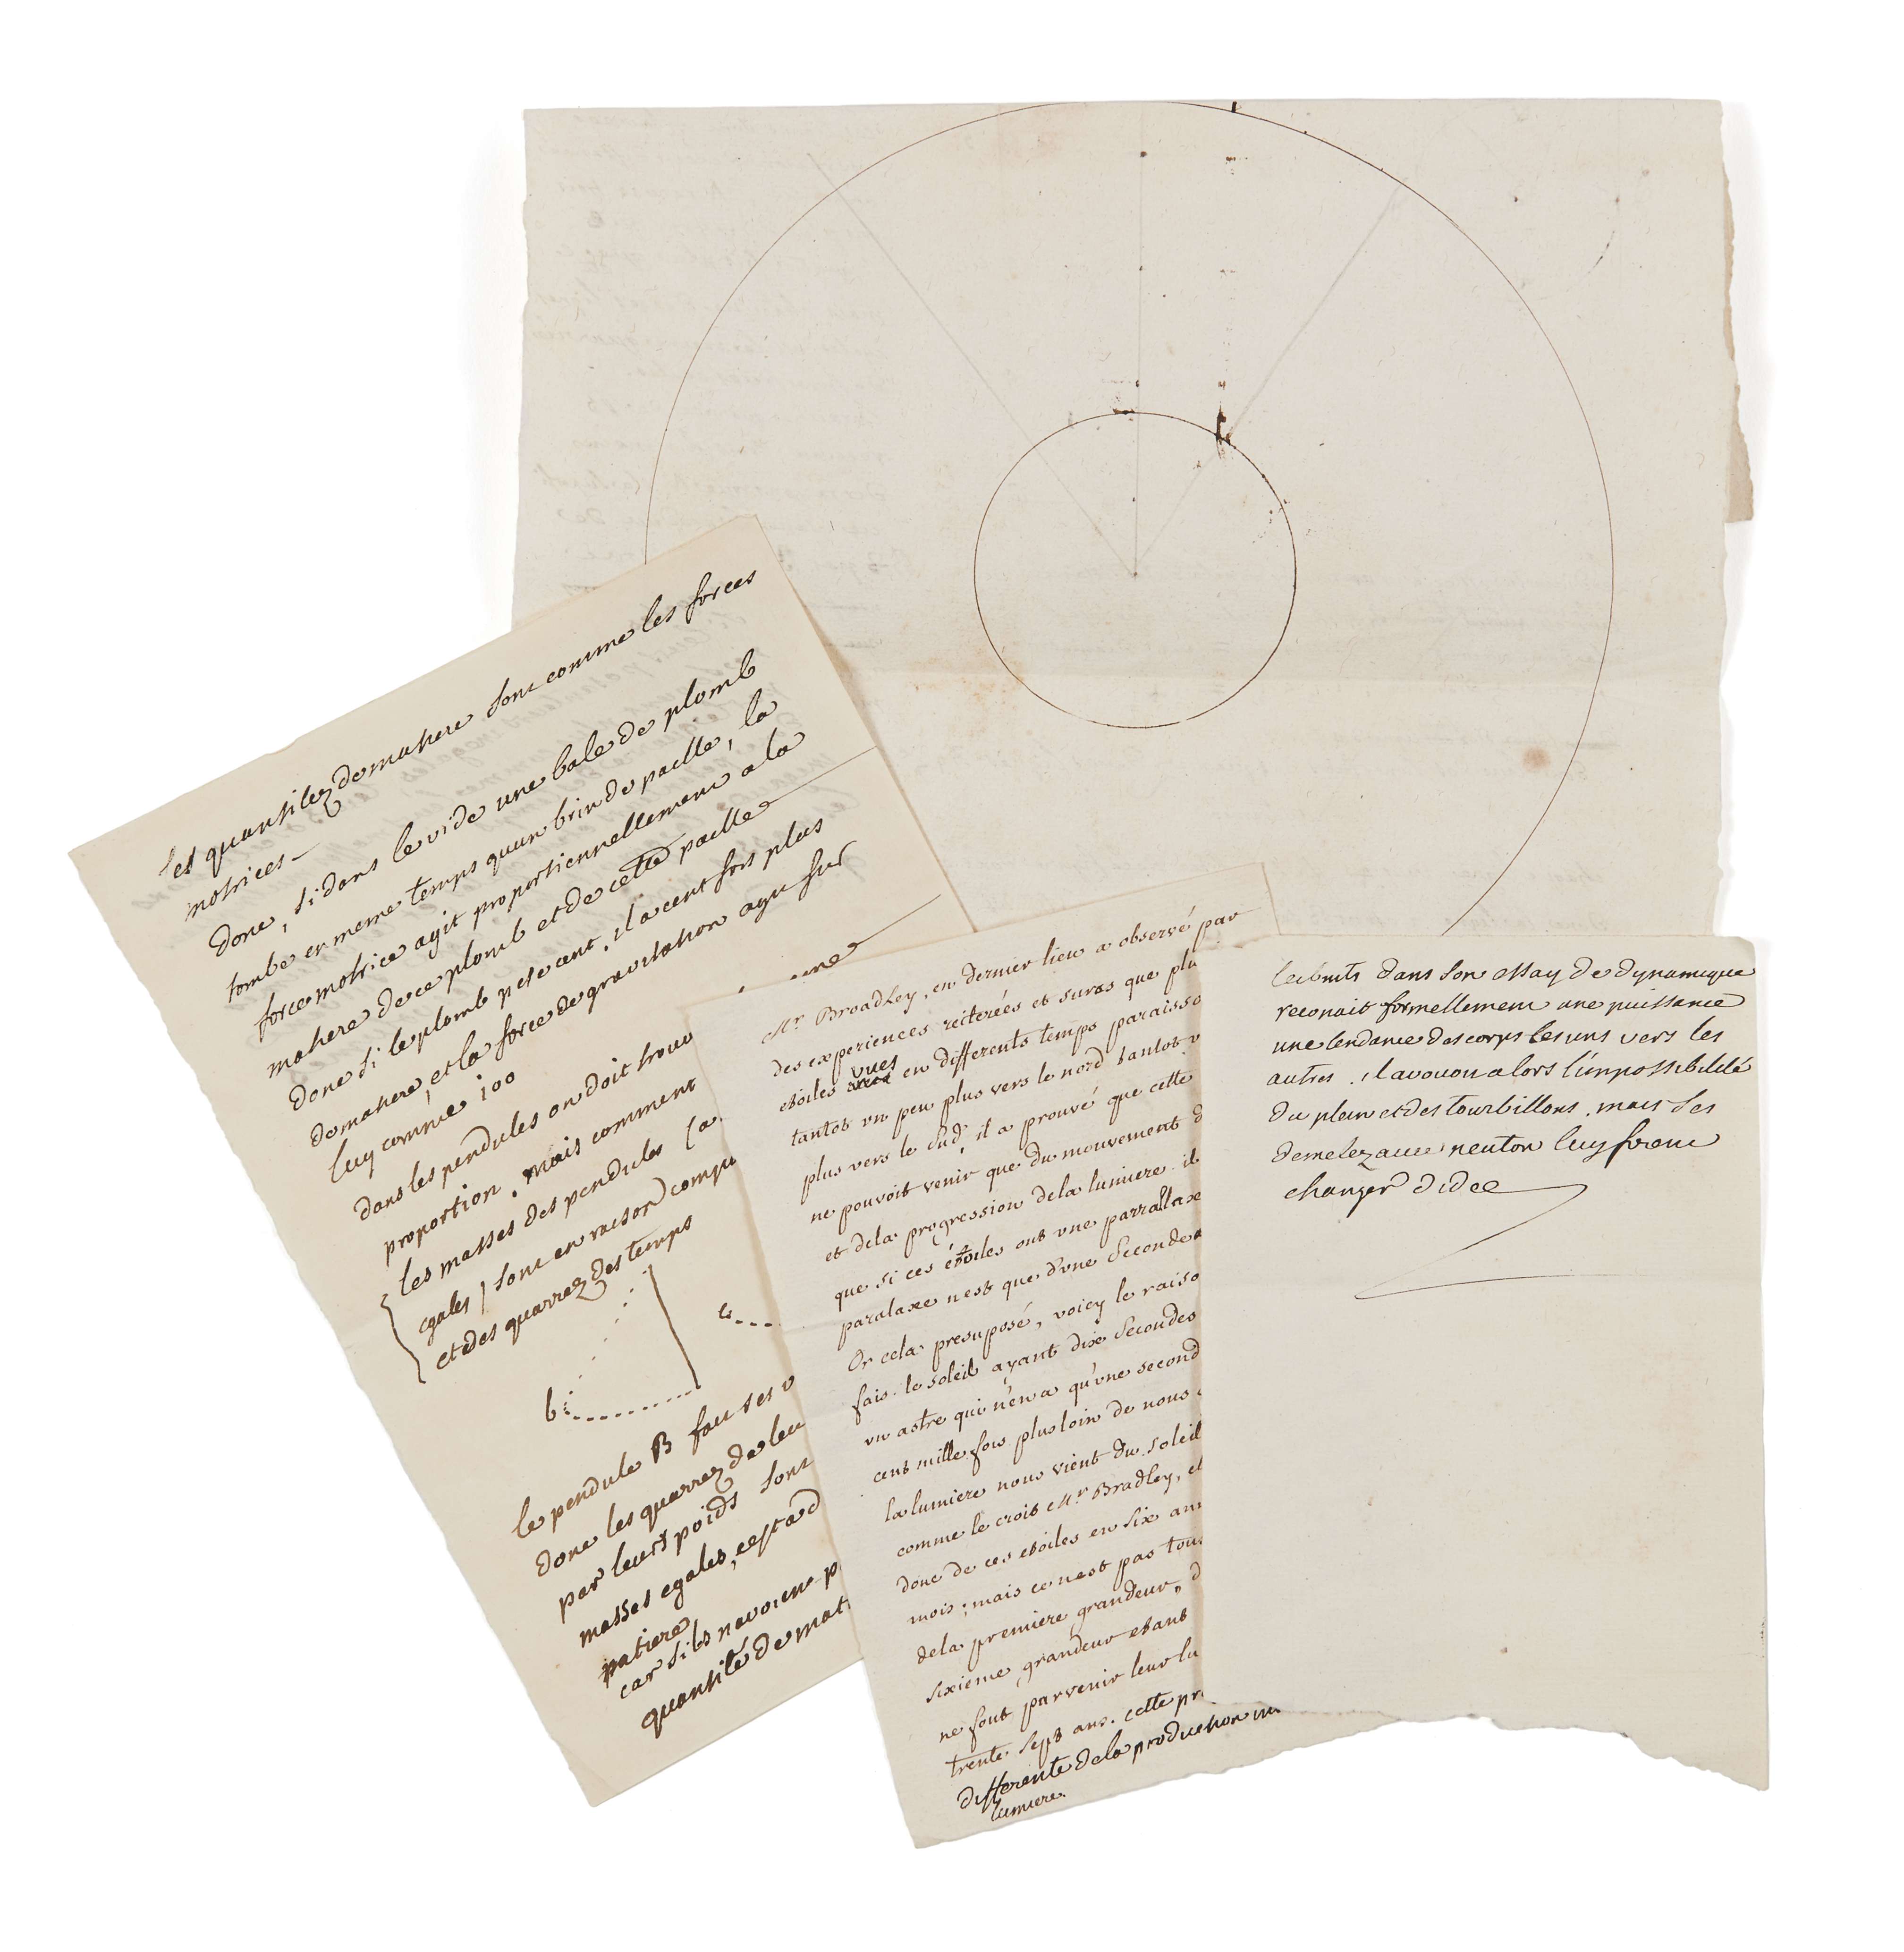 les quantitez de matiere sont comme les forces
motrices
donc, si dans le vide une bale de plomb
tombe en meme temps quun brin de paille, la
force motrice agit proportionnellement a la
matiere de ce plomb et de cette paille
donc si le plomb pese cent, il a cent fois plus
de matiere, et la force de gravitation agit sur
luy comme 100
dans les pendules on doit trouv
proportion. mais comment
les masses des pendules (a
egales) sont en raison compo
et des quarrez des temps
b
le pendule B fait ses v
donc les quarrez de leu
par leurs poids sont
masses egales, cest a d
matiere
car sils navoient p
quantité de mat
une
Mr. Bradley, en dernier lieu a observé par
des experiences reiterées et sures que plu
etoiles vues en differents temps paraisso
tantot un peu plus vers le nord tantot u
plus vers le sud, il a prouvé que cette
ne pouvoit venir que du mouvement d
et dela progression dela lumiere. il
que si ces étoiles ont une parrallaxe
paralaxe nest que dune seconde
Or cela presuposé, voicy le raiso
fais. le soleil ayant dix secondes
un astre qui n'en a qu'une second
cent mille fois plus loin de nous
la lumiere nous vient du soleil
comme le croit Mr. Bradley, et
donc de ces etoiles en six ans
mois; mais ce nest pas tout
dela premiere grandeur, d
sixieme grandeur etant
ne font parvenir leur lu
trente sept ans. cette pr
differente dela production
lumiere.
leibnits dans son essay de dynamique
reconait formellement une puissance
une tendance des corps les uns vers les
autres. il avouoit alors l'impossibilité
du plein et des tourbillons. mais ses
demelez avec neuton luy firent
changer didee